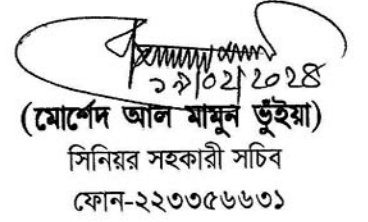 ১৯/০২/২০২৪
(মোর্শেদ আল মামুন ভুঁইয়া)
সিনিয়র সহকারী সচিব
ফোন-২২৩৩৫৬৬৩১